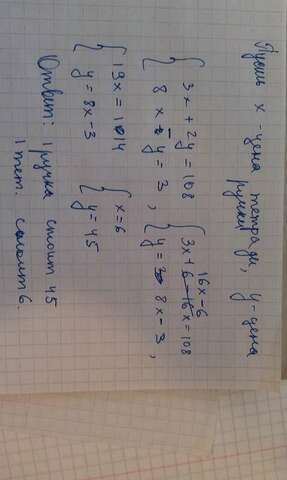 Пусть x - цена тетради, y - цена
ручки
{ 3x + 2y = 108
8x - y = 3 ,
{ 3x + 16x - 6 = 108
y = 8x - 3 ,
{ 19x = 114
y = 8x - 3
{ x = 6
y = 45
Ответ: 1 ручка стоит 45
1 тет. стоит 6.